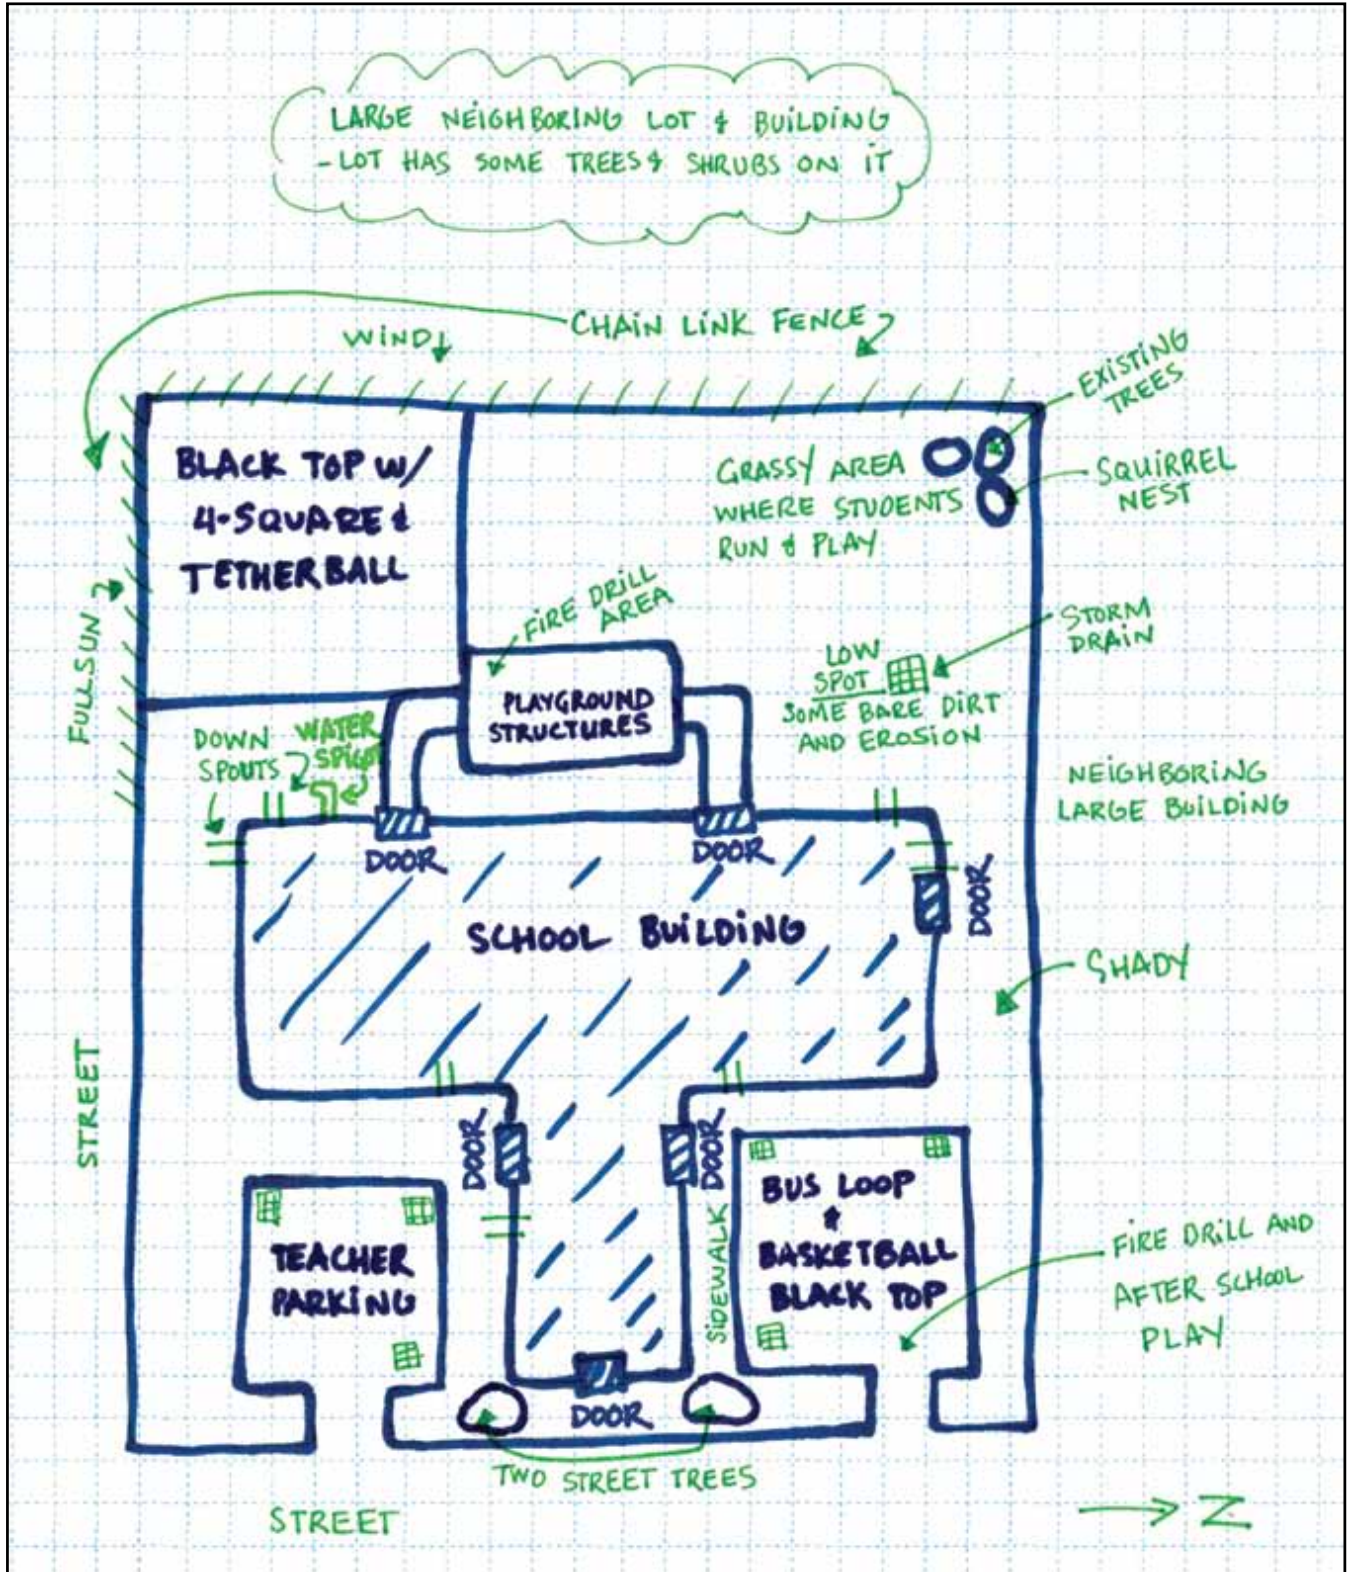 LARGE NEIGHBORING LOT & BUILDING
- LOT HAS SOME TREES & SHRUBS ON IT
CHAIN LINK FENCE
WIND
EXISTING
TREES
BLACK TOP W/
4-SQUARE &
TETHERBALL
GRASSY AREA
WHERE STUDENTS
RUN & PLAY
SQUIRREL
NEST
FIRE DRILL
AREA
STORM
DRAIN
FULL SUN
LOW
SPOT
SOME BARE DIRT
AND EROSION
PLAYGROUND
STRUCTURES
DOWN
SPOUTS
WATER
SPIGOT
NEIGHBORING
LARGE BUILDING
DOOR
DOOR
DOOR
SCHOOL BUILDING
SHADY
STREET
DOOR
DOOR
SIDEWALK
BUS LOOP
&
BASKETBALL
BLACK TOP
TEACHER
PARKING
FIRE DRILL AND
AFTER SCHOOL
PLAY
DOOR
TWO STREET TREES
STREET
N